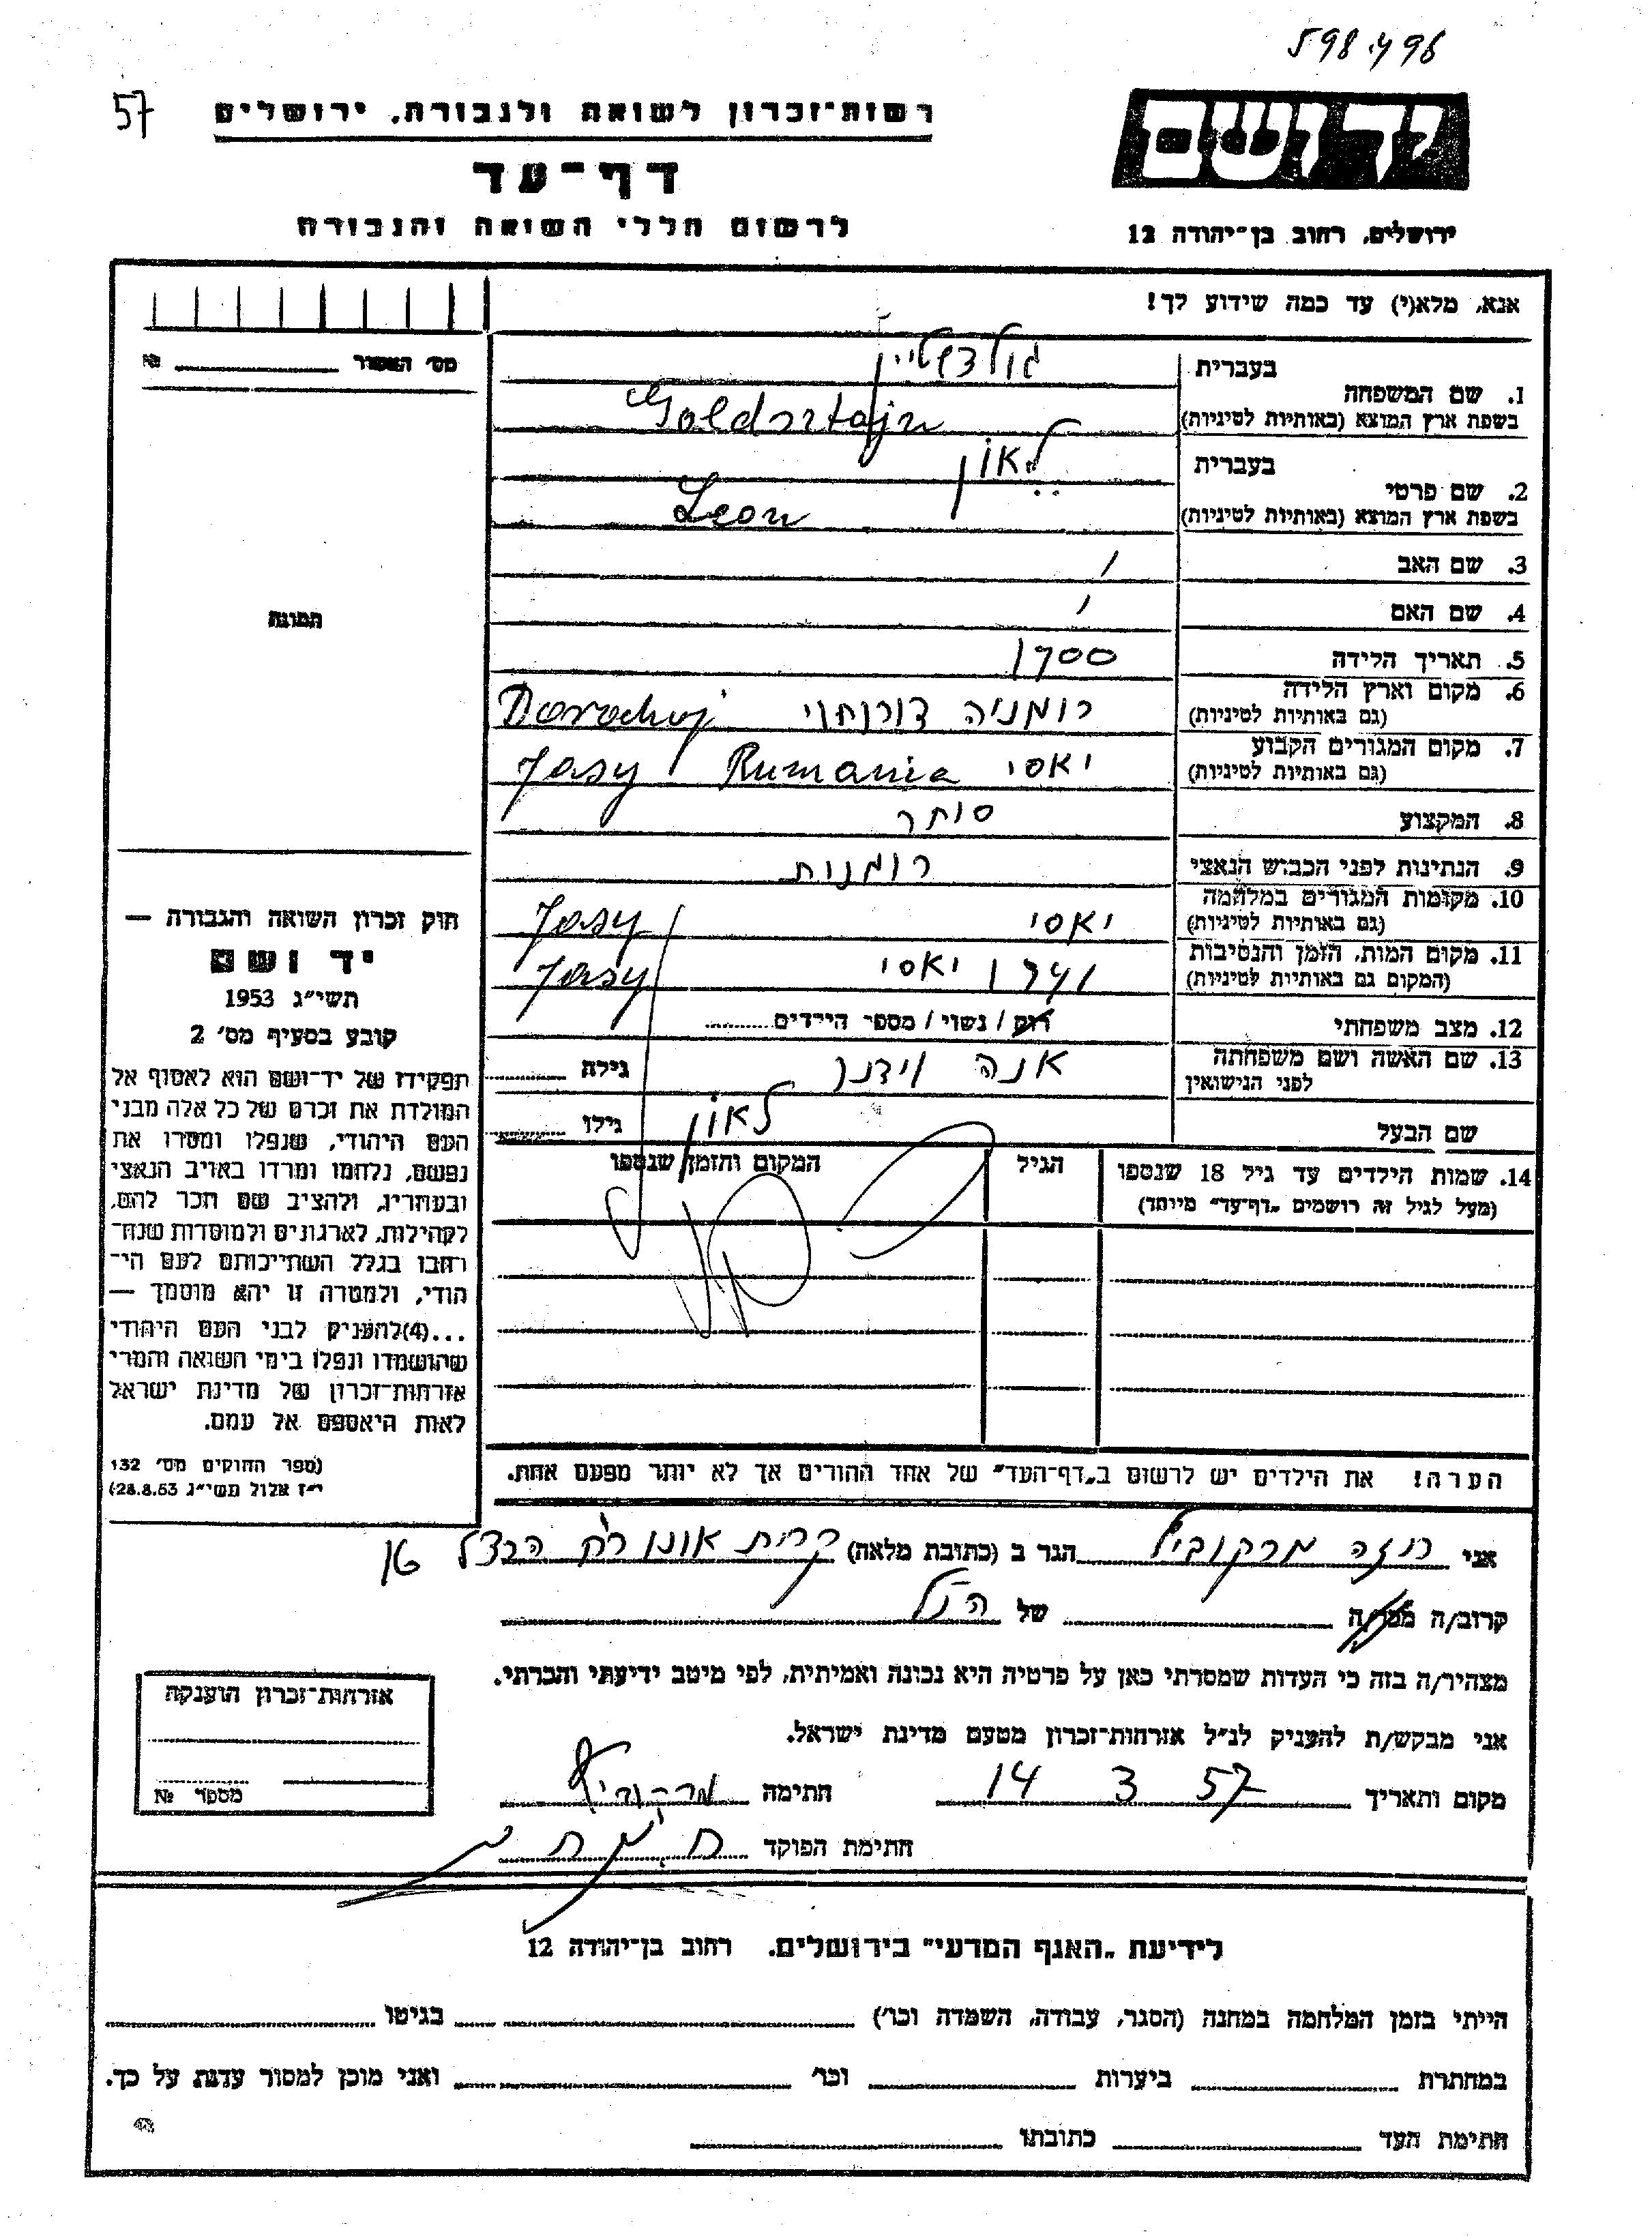 598 496
57
רשות־זכרון לשואה ולגבורה, ירושלים
יד ושם
דף־עד
לרשום חללי השואה והגבורה
ירושלים, רחוב בן־יהודה 12
אנא, מלא(י) עד כמה שידוע לך!
מס׳ האסור
№
1. שם המשפחה
בעברית
גולדשטיין
בשפת ארץ המוצא (באותיות לטיניות)
Goldsztajn
2. שם פרטי
בעברית
לאון
בשפת ארץ המוצא (באותיות לטיניות)
Leon
3. שם האב
4. שם האם
תמונה
5. תאריך הלידה
1900
6. מקום וארץ הלידה
(גם באותיות לטיניות)
רומניה דורוחוי Dorochoj
7. מקום המגורים הקבוע
(גם באותיות לטיניות)
יאסי Rumania Jasy
8. המקצוע סוחר
9. הנתינות לפני הכבוש הנאצי רומנית
10. מקומות המגורים במלחמה
(גם באותיות לטיניות)
יאסי Jasy
11. מקום המות, הזמן והנסיבות
(המקום גם באותיות לטיניות)
יאסי Jasy
12. מצב משפחתי רוק / נשוי / מספר הילדים
13. שם האשה ושם משפחתה
לפני הנישואין
אנה וידנר גילה
שם הבעל לאון גילו
14. שמות הילדים עד גיל 18 שנספו
(מעל לגיל זה רושמים „דף־עד״ מיוחד)
הגיל
המקום והזמן שנספו
הערה! את הילדים יש לרשום ב„דף־העד״ של אחד ההורים אך לא יותר מפעם אחת.
חוק זכרון השואה והגבורה —
יד ושם
תשי״ג 1953
קובע בסעיף מס׳ 2
תפקידו של יד־ושם הוא לאסוף אל
המולדת את זכרם של כל אלה מבני
העם היהודי, שנפלו ומסרו את
נפשם, נלחמו ומרדו באויב הנאצי
ובעוזריו, ולהציב שם וזכר להם,
לקהילות, לארגונים ולמוסדות שנח־
רבו בגלל השתייכותם לעם הי־
הודי, ולמטרה זו יהא מוסמך —
...(4) להעניק לבני העם היהודי
שהושמדו ונפלו בימי השואה והמרי
אזרחות־זכרון של מדינת ישראל
לאות היאספם אל עמם.
(ספר החוקים מס׳ 132
י״ז אלול תשי״ג 28.8.53)
אני רוזה מרקוביץ הגר ב (כתובת מלאה) קרית אונו רח הרצל
קרוב/ה מכר/ה של הנ״ל
מצהיר/ה בזה כי העדות שמסרתי כאן על פרטיה היא נכונה ואמיתית, לפי מיטב ידיעתי והכרתי.
אני מבקש/ת להעניק לנ״ל אזרחות־זכרון מטעם מדינת ישראל.
מקום ותאריך 14 3 57 חתימה מרקוביץ
חתימת הפוקד
אזרחות־זכרון הוענקה
מספר №
לידיעת „האגף המדעי״ בירושלים. רחוב בן־יהודה 12
הייתי בזמן המלחמה במחנה (הסגר, עבודה, השמדה וכו׳) בגיטו
במחתרת ביערות וכו׳ ואני מוכן למסור עדות על כך.
חתימת העד כתובתו